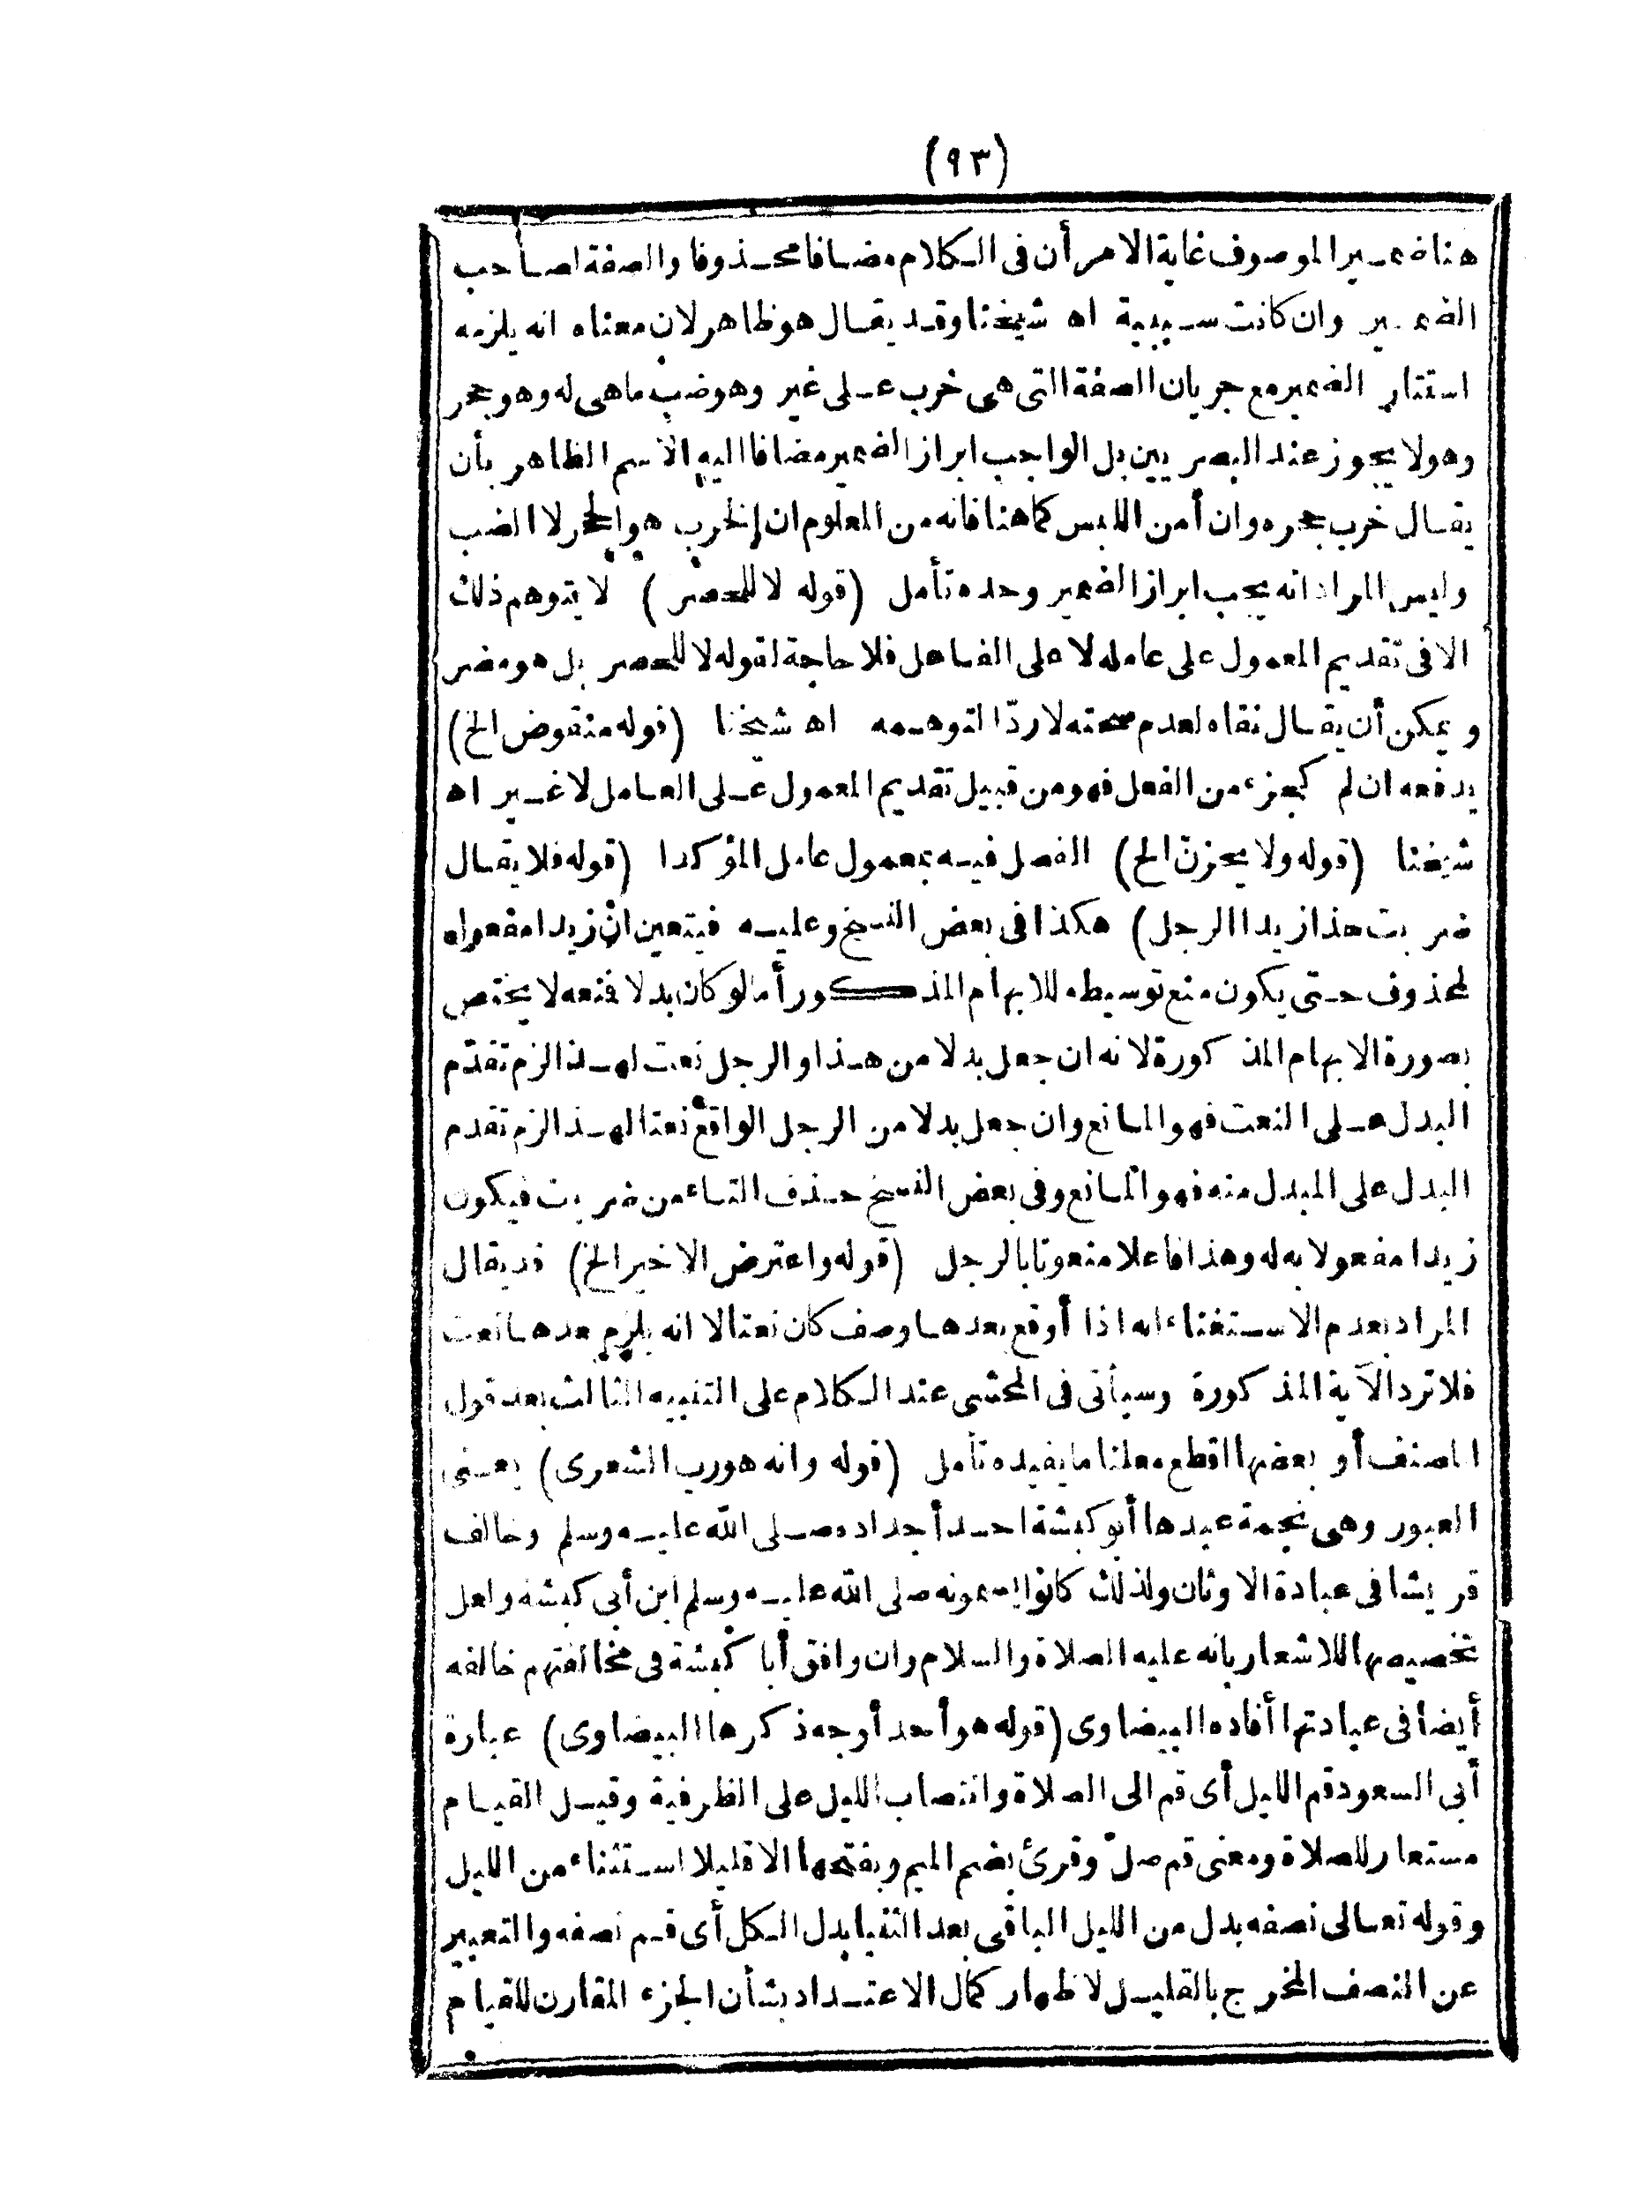 (٩٣)
هنا ضمير الموصوف غاية الامر أن فى الكلام مضافا محذوفا والصفة لصاحب
الضمير وان كانت سببية اه شيخنا وقد يقال هو ظاهر لان معناه انه يلزمه
استتار الضمير مع جريان الصفة التى هى خرب على غير وهو ضب ما هى له وهو جحر
وهو لا يجوز عند البصريين بل الواجب ابراز الضمير مضافا اليه الاسم الظاهر بأن
يقال خرب جحره وان أمن اللبس كما هنا فانه من المعلوم ان الخرب هو الجحر لا الضب
وليس المراد انه يجب ابراز الضمير وحده تأمل (قوله لا للحصر) لا يتوهم ذلك
الا فى تقديم المعمول على عامله لا على الفاعل فلا حاجة لقوله لا للحصر بل هو مضر
ويمكن أن يقال نفاه لعدم صحته لا ردّا لتوهمه اه شيخنا (قوله منقوض الخ)
يدفعه ان لم كجزء من الفعل فهو من قبيل تقديم المعمول على العامل لا غير اه
شيخنا (قوله ولا يحزنّ الخ) الفصل فيه بمعمول عامل المؤكدا (قوله فلا يقال
ضربت هذا زيدا الرجل) هكذا فى بعض النسخ وعليه فيتعين ان زيدا مفعوله
لمحذوف حتى يكون منع توسيطه للابهام المذكور أما لو كان بدلا فمنعه لا يختص
بصورة الابهام المذكورة لانه ان جعل بدلا من هذا والرجل نعت لهذا لزم تقدّم
البدل على النعت فهو المانع وان جعل بدلا من الرجل الواقع نعتا لهذا لزم تقدم
البدل على المبدل منه فهو المانع وفى بعض النسخ حذف التاء من ضربت فيكون
زيدا مفعولا به له وهذا فاعلا منعوتا بالرجل (قوله واعترض الاخير الخ) قد يقال
المراد بعدم الاستغناء انه اذا أوقع بعدها وصف كان نعتا لا انه يلزم بعدها نعت
فلا ترد الآية المذكورة وسيأتى فى المحشى عند الكلام على التنبيه الثالث بعد قول
المصنف أو بعضها اقطع معلنا ما يفيده تأمل (قوله وانه هو رب الشعرى) يعنى
العبور وهى نجمة عبدها أبو كبشة احد أجداده صلى الله عليه وسلم وخالف
قريشا فى عبادة الاوثان ولذلك كانوا يسمونه صلى الله عليه وسلم ابن أبى كبشة ولعل
تخصيصها للاشعار بانه عليه الصلاة والسلام وان وافق أبا كبشة فى مخالفتهم خالفه
أيضا فى عبادتها أفاده البيضاوى (قوله هو أحد أوجه ذكرها البيضاوى) عبارة
أبى السعود قم الليل أى قم الى الصلاة وانتصاب الليل على الظرفية وقيل القيام
مستعار للصلاة ومعنى قم صلّ وقرئ بضم الميم وبفتحها الا قليلا استثناء من الليل
وقوله تعالى نصفه بدل من الليل الباقى بعد الثنيا بدل الكل أى قم نصفه والتعبير
عن النصف المخرج بالقليل لاظهار كمال الاعتداد بشأن الجزء المقارن للقيام